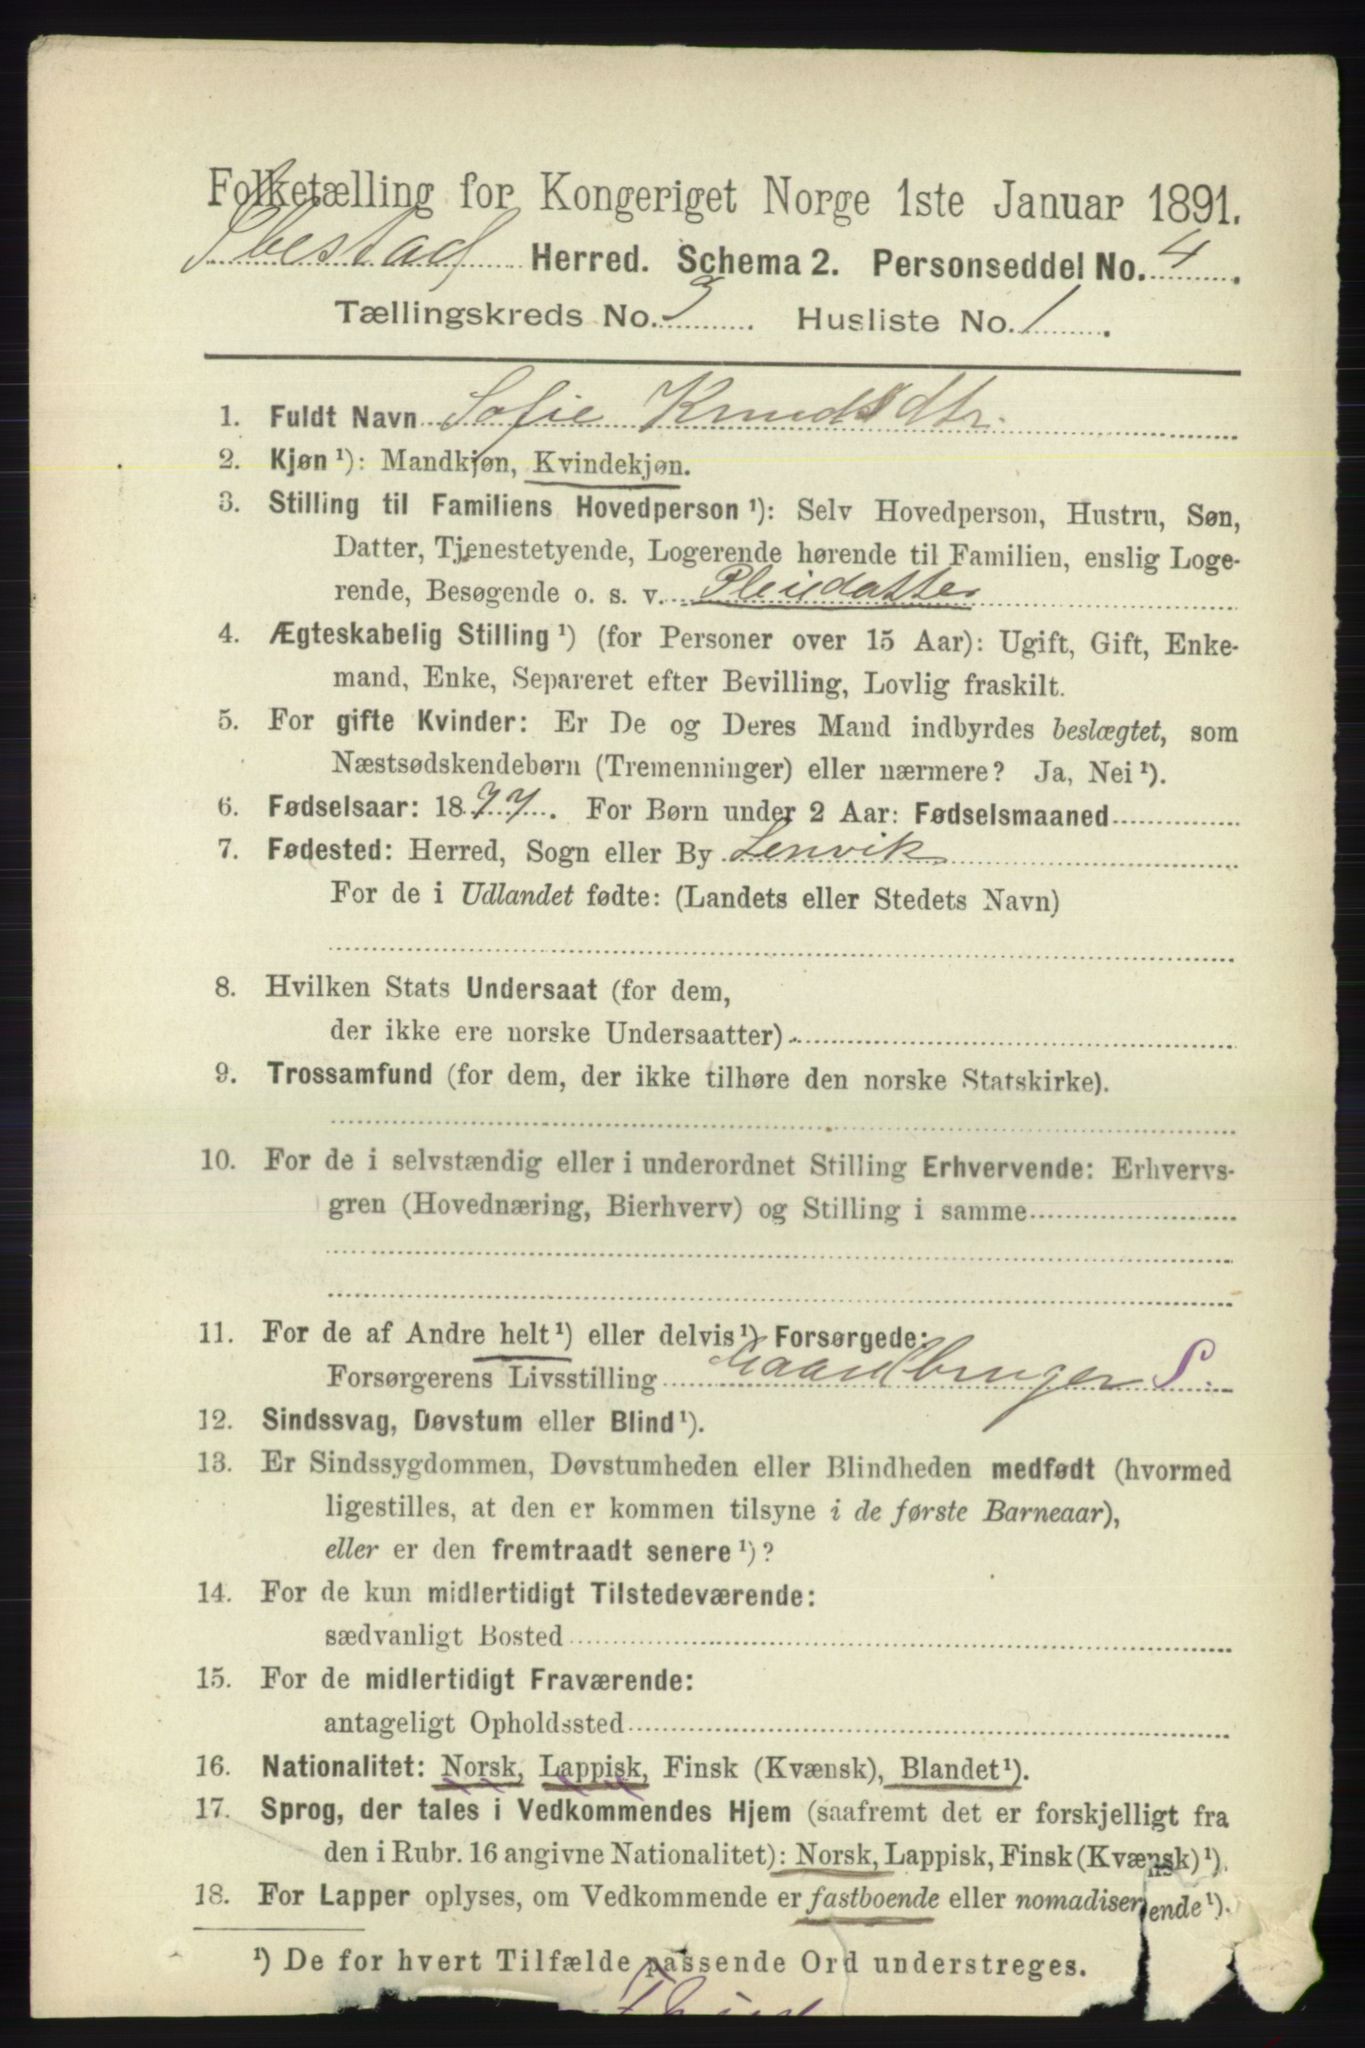 Folketælling for Kongeriget Norge 1ste Januar 1891.
Ibestad Herred. Schema 2. Personseddel No. 4
Tællingskreds No. 9 Husliste No. 1
1. Fuldt Navn Sofie Knudsdtr.
2. Kjøn ¹): Mandkjøn, Kvindekjøn.
3. Stilling til Familiens Hovedperson ¹): Selv Hovedperson, Hustru, Søn,
Datter, Tjenestetyende, Logerende hørende til Familien, enslig Loge-
rende, Besøgende o. s. v. Pleiedatter
4. Ægteskabelig Stilling ¹) (for Personer over 15 Aar): Ugift, Gift, Enke-
mand, Enke, Separeret efter Bevilling, Lovlig fraskilt.
5. For gifte Kvinder: Er De og Deres Mand indbyrdes beslægtet, som
Næstsødskendebørn (Tremenninger) eller nærmere? Ja, Nei ¹).
6. Fødselsaar: 1877. For Børn under 2 Aar: Fødselsmaaned
7. Fødested: Herred, Sogn eller By Lenvik
For de i Udlandet fødte: (Landets eller Stedets Navn)
8. Hvilken Stats Undersaat (for dem,
der ikke ere norske Undersaatter)
9. Trossamfund (for dem, der ikke tilhøre den norske Statskirke).
10. For de i selvstændig eller i underordnet Stilling Erhvervende: Erhvervs-
gren (Hovednæring, Bierhverv) og Stilling i samme
11. For de af Andre helt ¹) eller delvis ¹) Forsørgede:
Forsørgerens Livsstilling Gaardbruger S.
12. Sindssvag, Døvstum eller Blind ¹).
13. Er Sindssygdommen, Døvstumheden eller Blindheden medfødt (hvormed
ligestilles, at den er kommen tilsyne i de første Barneaar),
eller er den fremtraadt senere ¹)?
14. For de kun midlertidigt Tilstedeværende:
sædvanligt Bosted
15. For de midlertidigt Fraværende:
antageligt Opholdssted
16. Nationalitet: Norsk, Lappisk, Finsk (Kvænsk), Blandet ¹).
17. Sprog, der tales i Vedkommendes Hjem (saafremt det er forskjelligt fra
den i Rubr. 16 angivne Nationalitet): Norsk, Lappisk, Finsk (Kvænsk) ¹).
18. For Lapper oplyses, om Vedkommende er fastboende eller nomadiserende ¹).
¹) De for hvert Tilfælde passende Ord understreges.